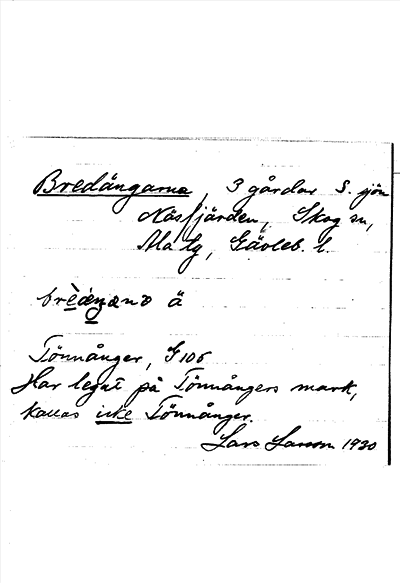 Bredängarna, 3 gårdar S. sjön
Näsfjärden, Skog sn,
Ala tg, Gävleb. l.
ä
Tönnånger, G 106
Har legat på Tönnångers mark,
kallas icke Tönnånger.
Lars Larsson 1930